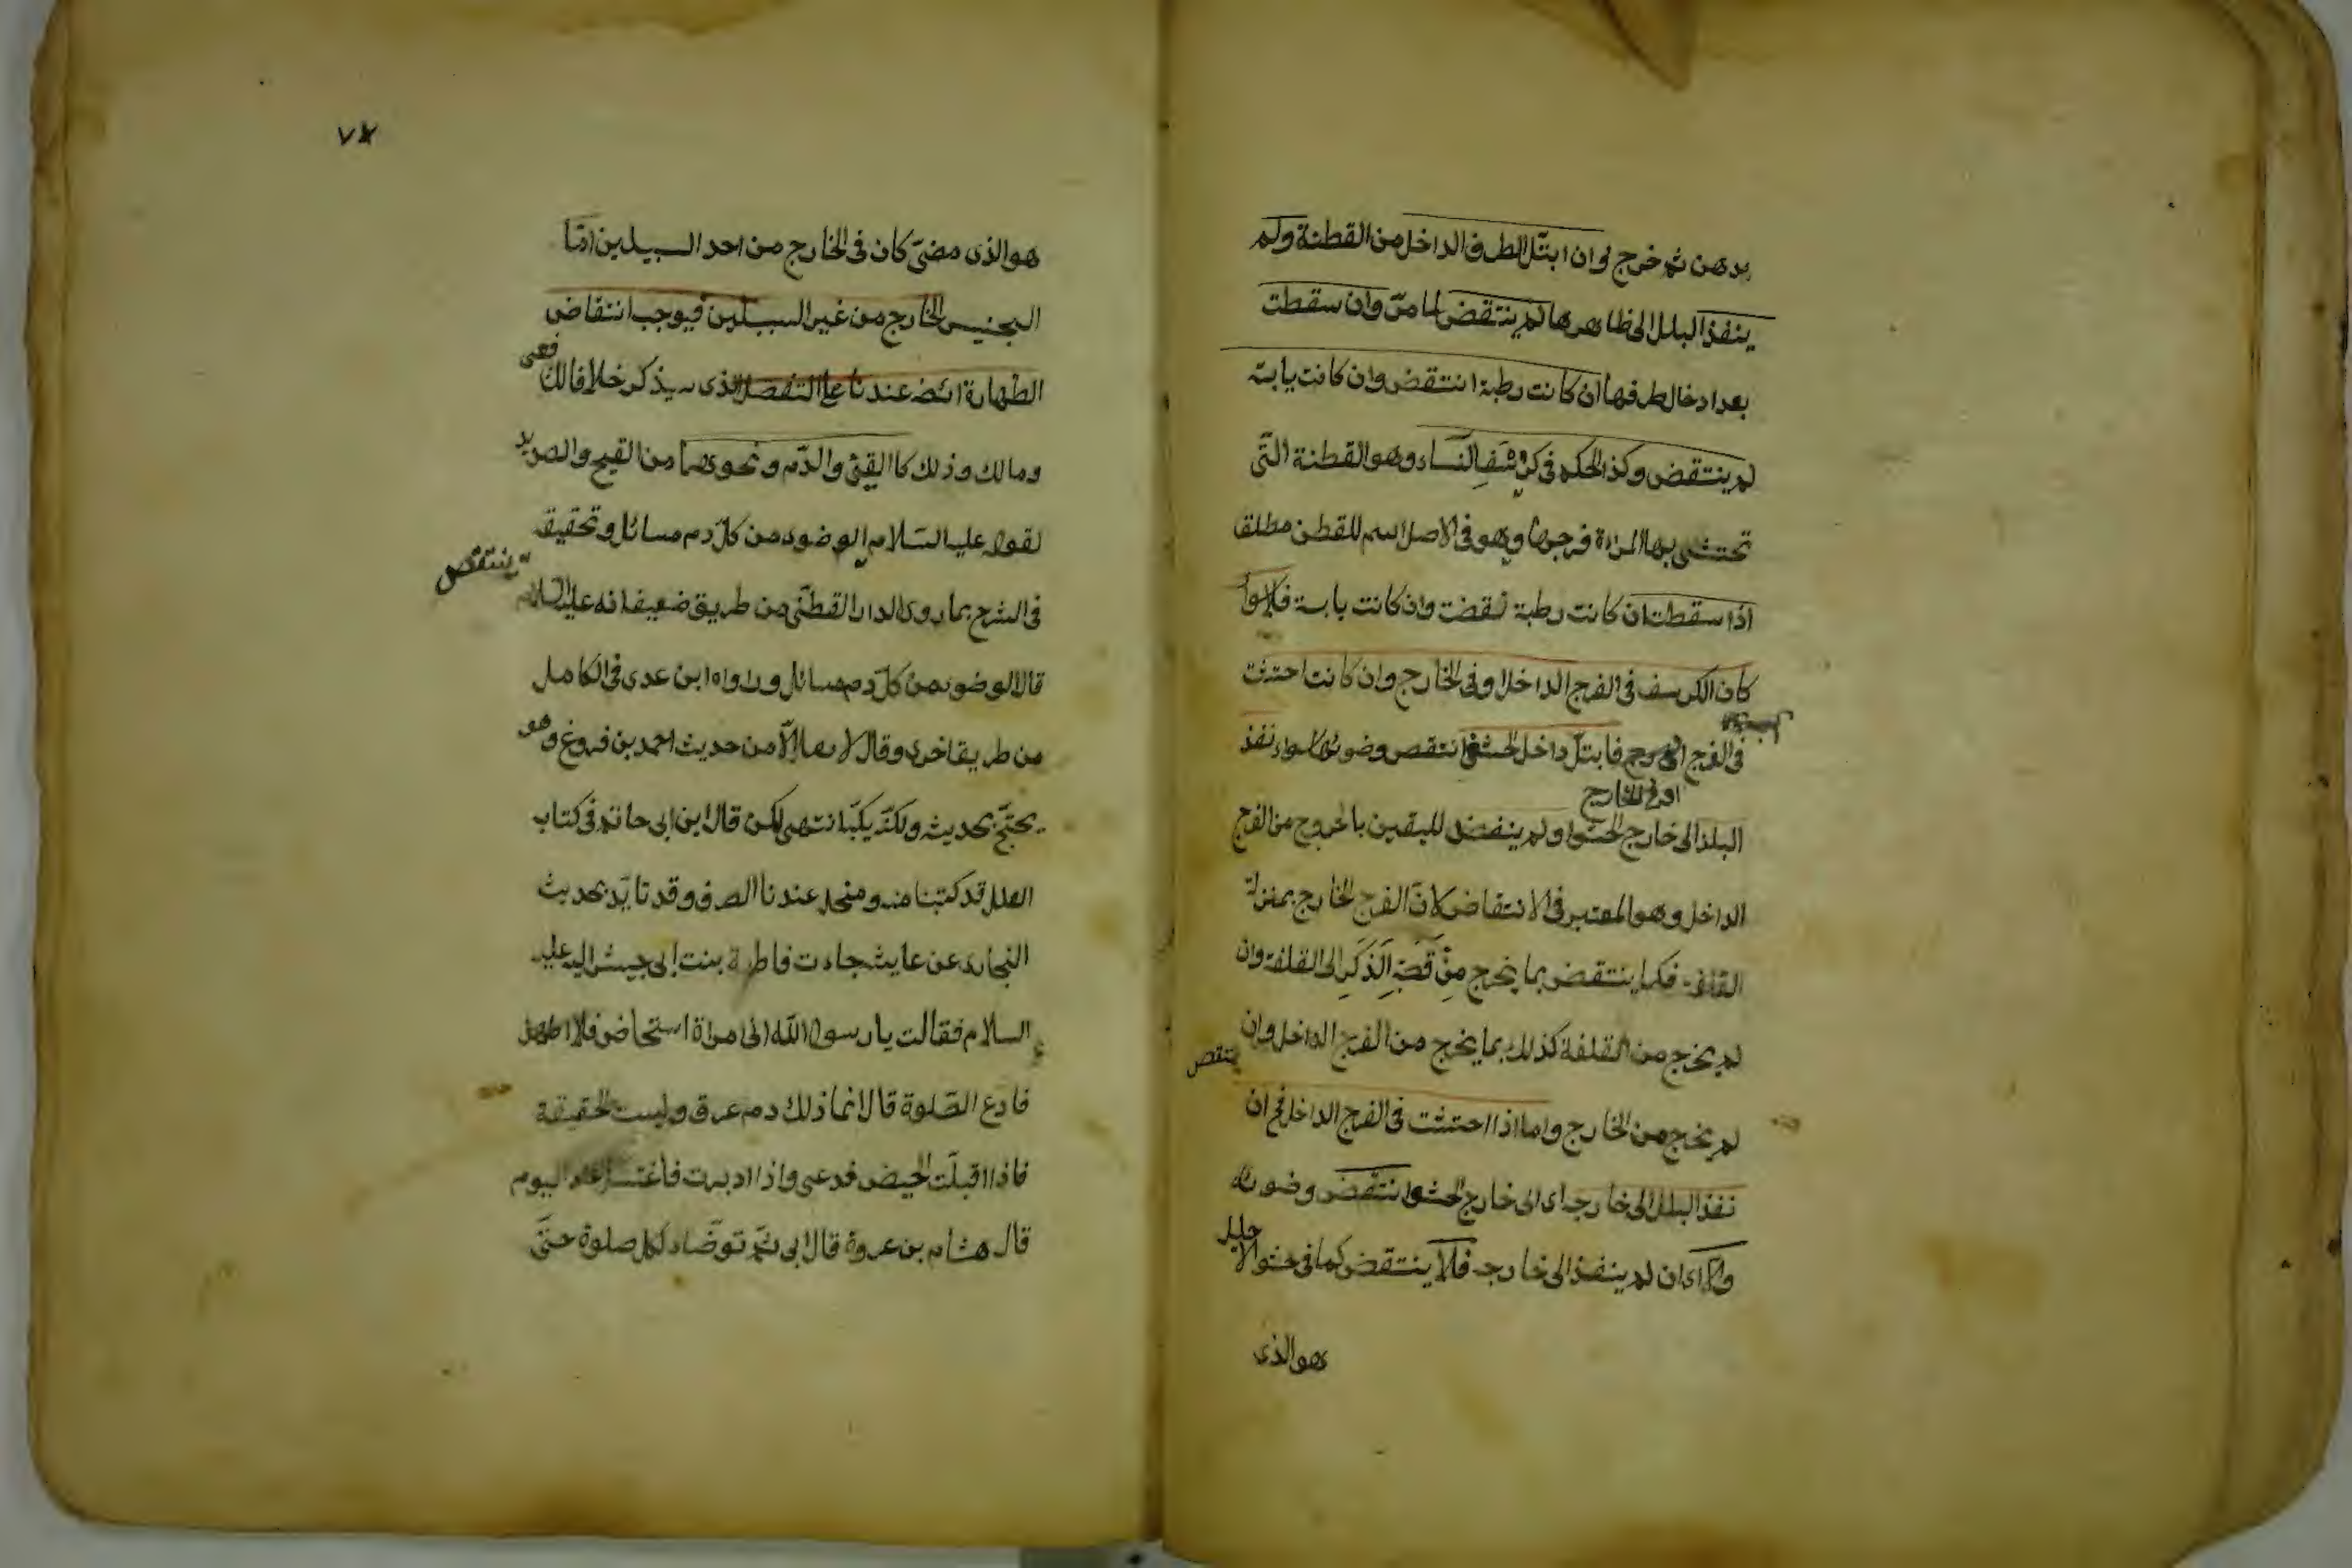 بدهن ثم خرج وان ابتل الطرف الداخل من القطنة ولم
ينفذ البلل الى ظاهرها لم ينتقض لما مرّ وان سقطت
بعد ادخال طرفها ان كانت رطبة انتقض وان كانت يابسة
لم ينتقض وكذا الحكم في كرسف النساء وهو القطنة التي
تحتشى بها المراة فرجها وهو في الاصل اسم للقطن مطلقا
اذا سقطت ان كانت رطبة نقضت وان كانت يابسة فلا ولو
كان الكرسف في الفرج الداخل او في الخارج وان كانت احتشت
في الفرج فابتل داخل الحشو انتقض وضوئها سواء نفذ
او في الخارج
البلل الى خارج الحشو او لم ينفذ لليقين بالخروج من الفرج
الداخل وهو المعتبر في الانتقاض لان الفرج الخارج بمنزلة
القلفة فكما ينتقض بما يخرج من قصبة الذكر الى القلفة وان
لم يخرج من القلفة كذلك بما يخرج من الفرج الداخل وان
ينتقض
لم يخرج من الخارج واما اذا احتشت في الفرج الداخل فح ان
نفذ البلل الى خارجه اى الى خارج الحشو انتقض وضوئه
والا اى ان لم ينفذ الى خارجه فلا ينتقض كما في حشو الاحليل
هو الذى
٧٧
هو الذى مضى كان في الخارج من احد السبيلين امّا
النجس الخارج من غير السبيلين فيوجب انتقاض
الطهارة ايضا عندنا على التفصيل الذى سيذكر خلافا للشافعى
ومالك وذلك كالقيئ والدّم ونحوهما من القيح والصديد
لقوله عليه السّلام الوضوء من كلّ دم سائل وتحقيقه
ينتقض
في الشرح بما روى الدار القطنى من طريق ضعيف انه عليه السلام
قال الوضوء من كلّ دم سائل ورواه ابن عدى في الكامل
من طريق اخرى وقال لا نعرفه الّا من حديث احمد بن فروغ وهو
يحتجّ بحديثه ولكنه يكتب انتهى لكن قال ابن ابى حاتم في كتاب
العلل قد كتبنا عنه ومحله عندنا الصدق وقد تايّد بحديث
البخارى عن عايشة جاءت فاطمة بنت ابى حبيش اليه عليه
السلام فقالت يا رسول الله انى امراة استحاض فلا اطهر
فادع الصّلوة قال لا انما ذلك دم عرق وليست الحقيقة
فاذا اقبلت الحيض فدعى واذا ادبرت فاغتسلى عند اليوم
قال هشام بن عروة قال ابى ثم توضّاء لكل صلوة حتى